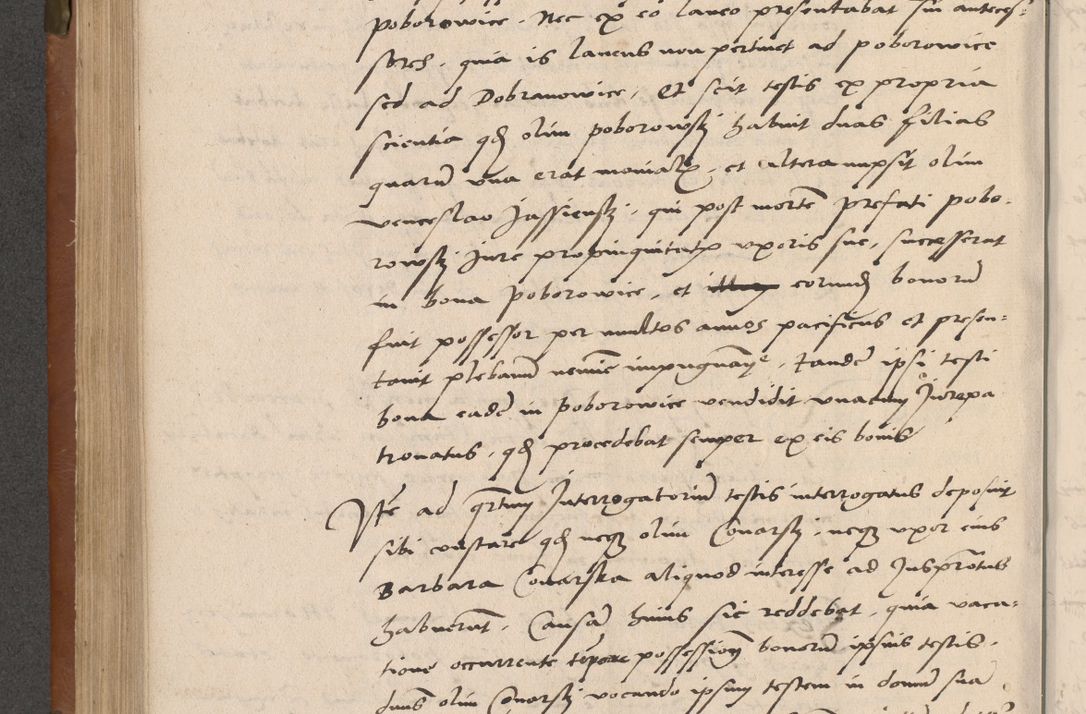 poborowice. Nec ex eo laneo presentabat sui anteces:
sores. quia is laneus non pertinet ad poborowice
sed ad Dobranowice, Et scit testis ex propria
scientia qđ olim poborowskj habuit duas filias
quarū una erat monialis, et altera nupsit olim
venceslao Jassienskj, qui post mortē prefati pobo-
rowskj Jure propinquitatis uxoris sue, successerat
in bona poborowice, et eorundem bonorū
fuit possessor per multos annos pacificus et presen=
tavit plebanū nemine impugnante. Tandē ipsi testi
bona eadē in poborowice vendidit unacum Jurepa
tronatus, qđ procedebat semper ex eis bonis
Itē ad qrtum Interrogatoriū testis interrogatus deposuit
sibi constare qđ neqz olim Conarskj, neqz uxor eius
Barbara Conarska aliquod interesse ad Juspatrotus
habuerūt, Causam huius sic reddebat, quia vaca-
tione occurrente tempore possessionis bonorū ipsius testis,
dnus olim Conarskj vocando ipsum testem in domū sua